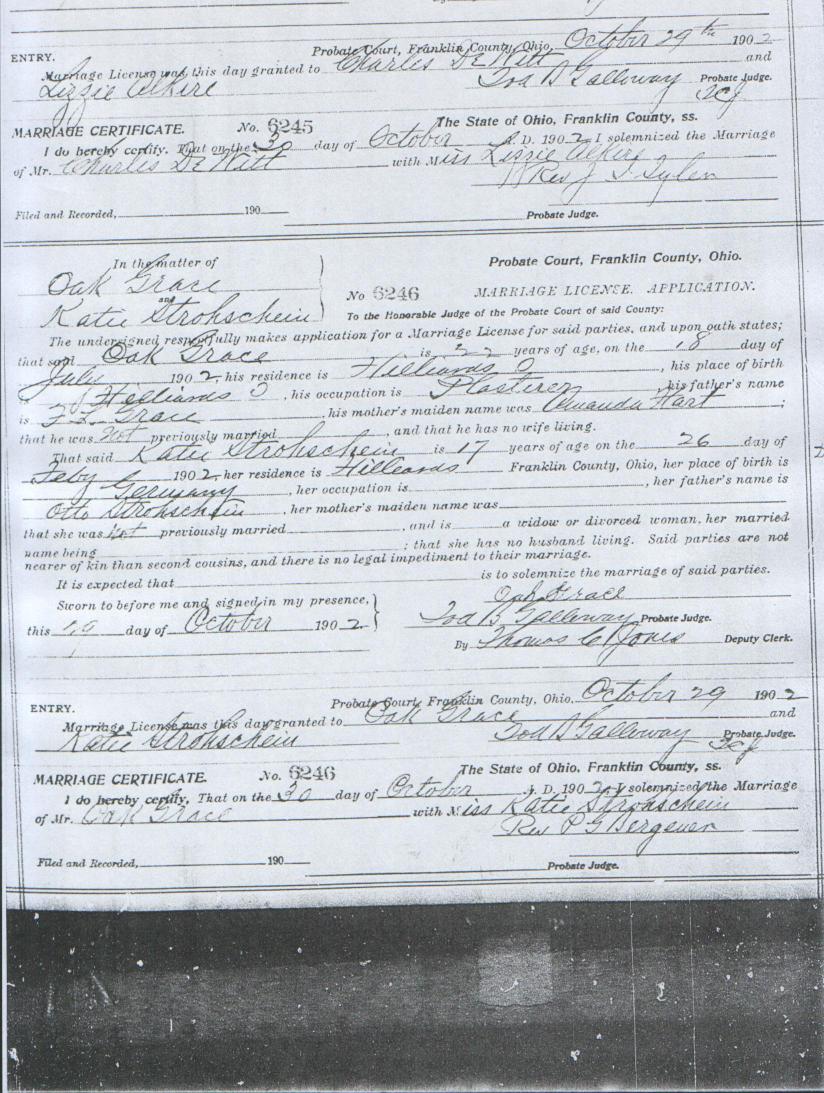 Probate Court, Franklin County, Ohio, October 29th 1902
ENTRY.
Marriage License was this day granted to Charles DeWitt and
Lizzie Alkire Tod B Galloway Probate Judge.
TCJ
MARRIAGE CERTIFICATE. No. 6245 The State of Ohio, Franklin County, ss.
I do hereby certify, That on the 30 day of October A. D. 1902, I solemnized the Marriage
of Mr. Charles DeWitt with Miss Lizzie Alkire
Rev J
Filed and Recorded, 190 Probate Judge.
In the matter of Probate Court, Franklin County, Ohio.
Oak Grace
and No 6246 MARRIAGE LICENSE. APPLICATION.
Katie Strohschein To the Honorable Judge of the Probate Court of said County:
The undersigned respectfully makes application for a Marriage License for said parties, and upon oath states;
that said Oak Grace is 22 years of age, on the 18 day of
July 1902, his residence is Hilliards O, his place of birth
is Hilliards O, his occupation is Plasterer, his father's name
is F. L. Grace, his mother's maiden name was Amanda Hart;
that he was not previously married, and that he has no wife living.
That said Katie Strohschein is 17 years of age on the 26 day of
Feby 1902, her residence is Hilleards Franklin County, Ohio, her place of birth is
Germany, her occupation is, her father's name is
Otto Strohschein, her mother's maiden name was
that she was not previously married, and is a widow or divorced woman, her married
name being; that she has no husband living. Said parties are not
nearer of kin than second cousins, and there is no legal impediment to their marriage.
It is expected that is to solemnize the marriage of said parties.
Oak Grace
Sworn to before me and signed in my presence,
this 29 day of October 1902. Tod B Galloway Probate Judge.
By Thomas C Jones Deputy Clerk.
Probate Court, Franklin County, Ohio, October 29 1902
ENTRY.
Marriage License was this day granted to Oak Grace and
Katie Strohschein Tod B Galloway Probate Judge.
TCJ
MARRIAGE CERTIFICATE. No. 6246 The State of Ohio, Franklin County, ss.
I do hereby certify, That on the 30 day of October A. D. 1902, I solemnized the Marriage
of Mr. Oak Grace with Miss Katie Strohschein
Rev P G Bergever
Filed and Recorded, 190 Probate Judge.